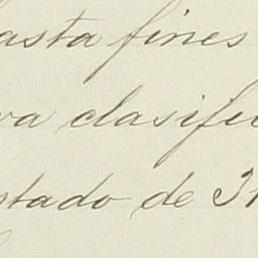 asta fines
va clasific
stado de